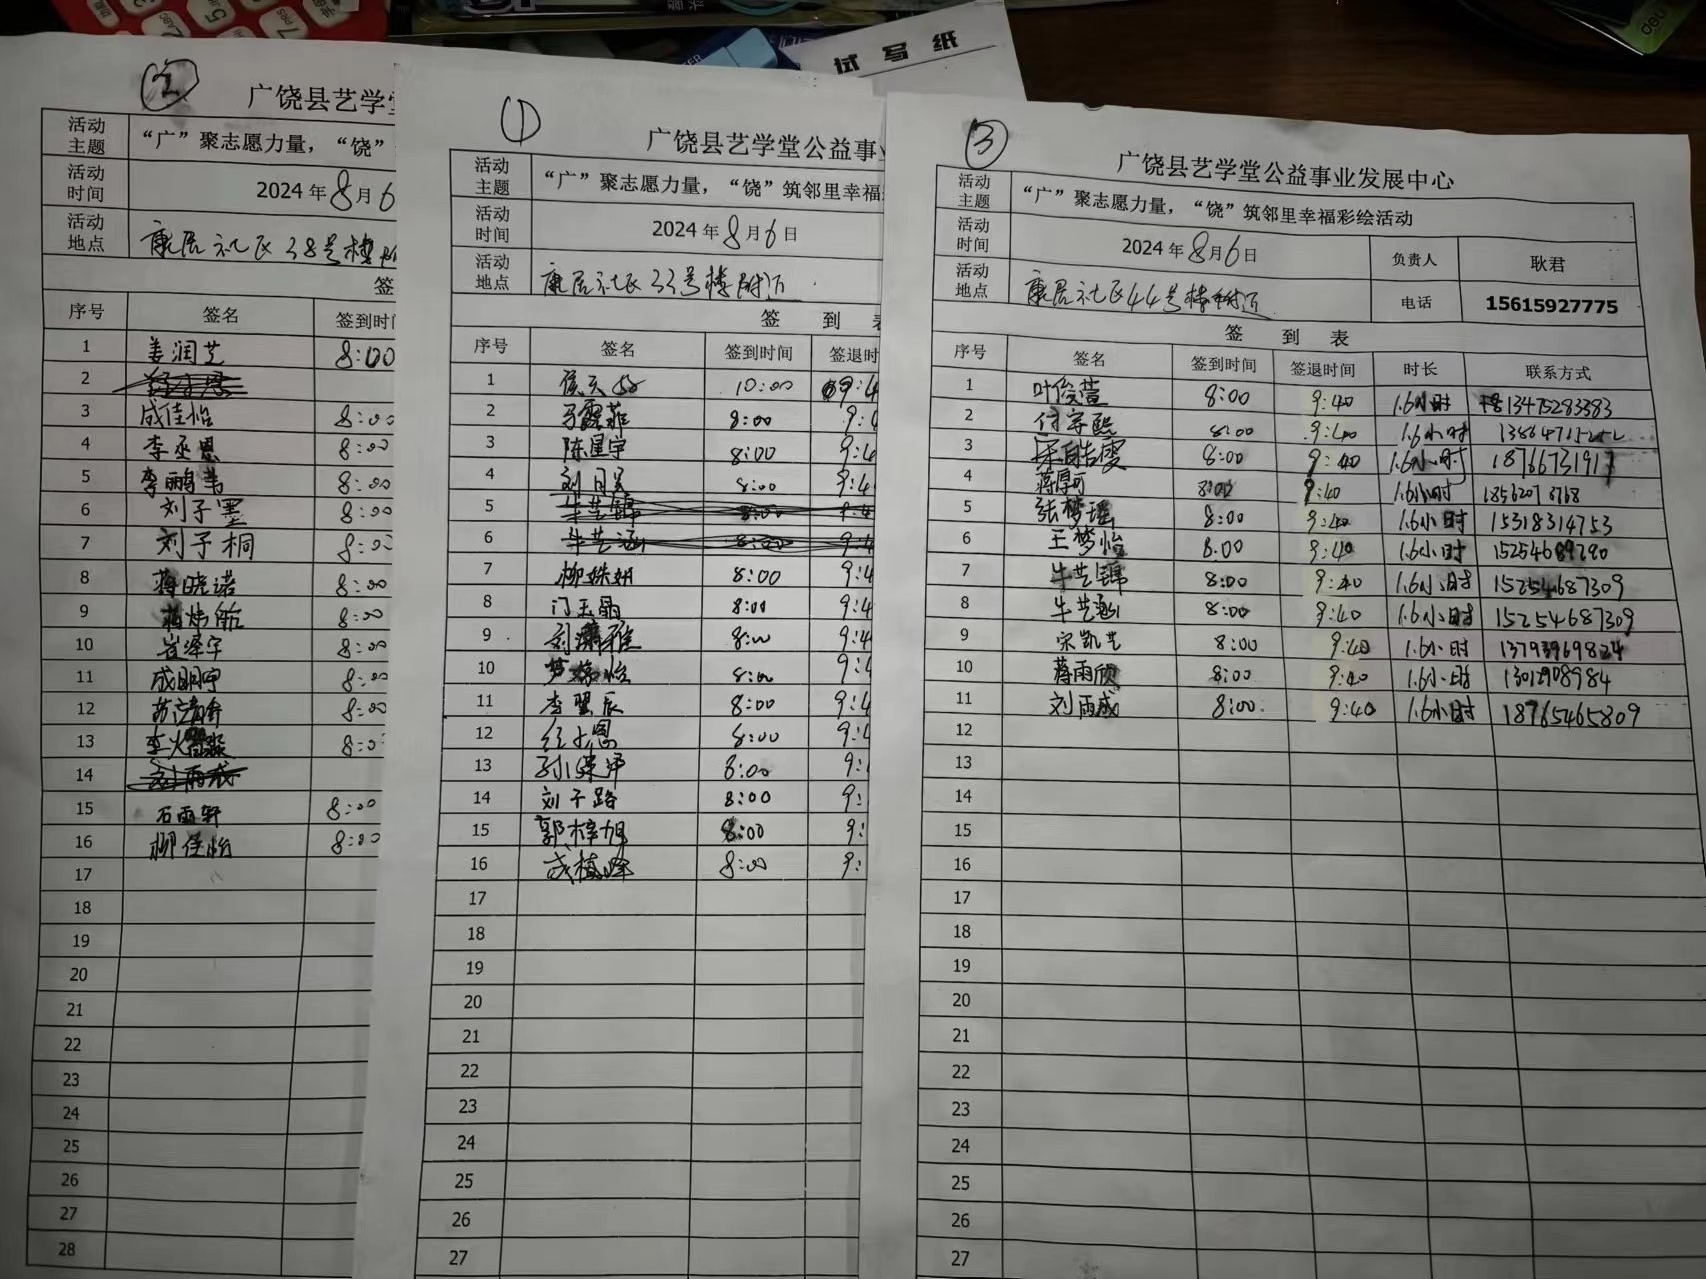 试写纸
②
广饶县艺学
活动主题 “广”聚志愿力量，“饶”
活动时间 2024年8月6
活动地点 康居社区38号楼
签
序号 签名 签到时间
1 姜润艺 8:00
2
3 成佳怡 8:00
4 李丞恩 8:00
5 李鹏 8:00
6 刘子墨 8:00
7 刘子桐 8:00
8 蒋晓诺 8:00
9 8:00
10 崔泽宇 8:00
11 成明宇 8:00
12 8:00
13 8:0
14 刘雨成
15 石雨轩 8:00
16 柳佳怡 8:00
17
18
19
20
21
22
23
24
25
26
27
28
①
广饶县艺学堂公益事业
活动主题 “广”聚志愿力量，“饶”筑邻里幸福
活动时间 2024年8月6日
活动地点 康居社区33号楼附近
签 到 表
序号 签名 签到时间 签退时
1 10:00 9:4
2 8:00 9:4
3 陈星宇 8:00 9:4
4 8:00 9:4
5 牛艺锦 8:00 9:4
6 牛艺涵 8:00 9:4
7 柳姝妍 8:00 9:4
8 门玉晶 8:00 9:4
9 8:00 9:4
10 8:00 9:4
11 李翌辰 8:00 9:4
12 8:00 9:4
13 8:00 9:
14 刘子路 8:00 9:
15 郭梓旭 8:00 9:
16 成植峰 8:00 9:
17
18
19
20
21
22
23
24
25
26
27
③
广饶县艺学堂公益事业发展中心
活动主题 “广”聚志愿力量，“饶”筑邻里幸福彩绘活动
活动时间 2024年8月6日 负责人 耿君
活动地点 康居社区44号楼附近 电话 15615927775
签 到 表
序号 签名 签到时间 签退时间 时长 联系方式
1 叶俊萱 8:00 9:40 1.6小时 13475283383
2 付字熙 8:00 9:40 1.6小时
3 8:00 9:40 1.6小时
4 8:00 9:40 1.6小时
5 张梦瑶 8:00 9:40 1.6小时 15318314753
6 王梦怡 8:00 9:40 1.6小时
7 牛艺锦 8:00 9:40 1.6小时 15254687309
8 牛艺涵 8:00 9:40 1.6小时 15254687309
9 宋凯艺 8:00 9:40 1.6小时 13793969824
10 蒋雨欣 8:00 9:40 1.6小时 13012908984
11 刘雨成 8:00 9:40 1.6小时 18765465809
12
13
14
15
16
17
18
19
20
21
22
23
24
25
26
27